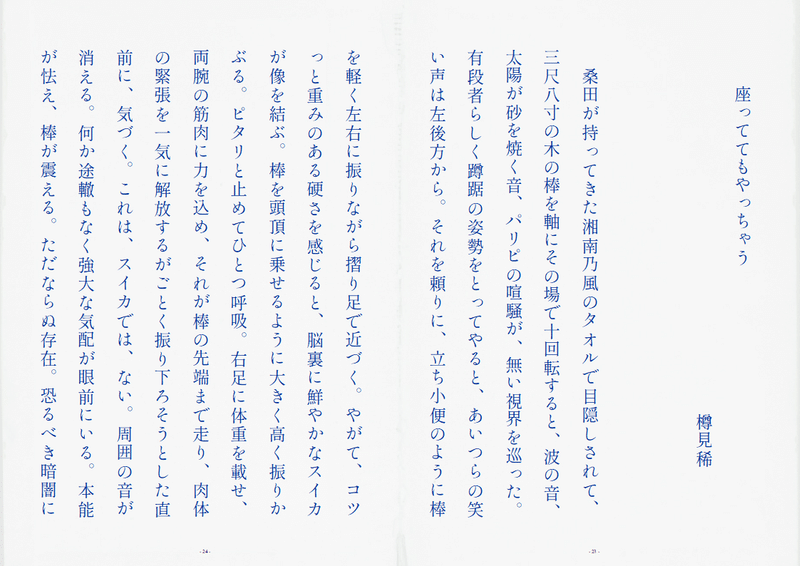 座っててもやっちゃう
樽見稀
桑田が持ってきた湘南乃風のタオルで目隠しされて、
三尺八寸の木の棒を軸にその場で十回転すると、波の音、
太陽が砂を焼く音、パリピの喧騒が、無い視界を巡った。
有段者らしく蹲踞の姿勢をとってやると、あいつらの笑
い声は左後方から。それを頼りに、立ち小便のように棒
を軽く左右に振りながら摺り足で近づく。やがて、コツ
っと重みのある硬さを感じると、脳裏に鮮やかなスイカ
が像を結ぶ。棒を頭頂に乗せるように大きく高く振りか
ぶる。ピタリと止めてひとつ呼吸。右足に体重を載せ、
両腕の筋肉に力を込め、それが棒の先端まで走り、肉体
の緊張を一気に解放するがごとく振り下ろそうとした直
前に、気づく。これは、スイカでは、ない。周囲の音が
消える。何か途轍もなく強大な気配が眼前にいる。本能
が怯え、棒が震える。ただならぬ存在。恐るべき暗闇に
- 24 -